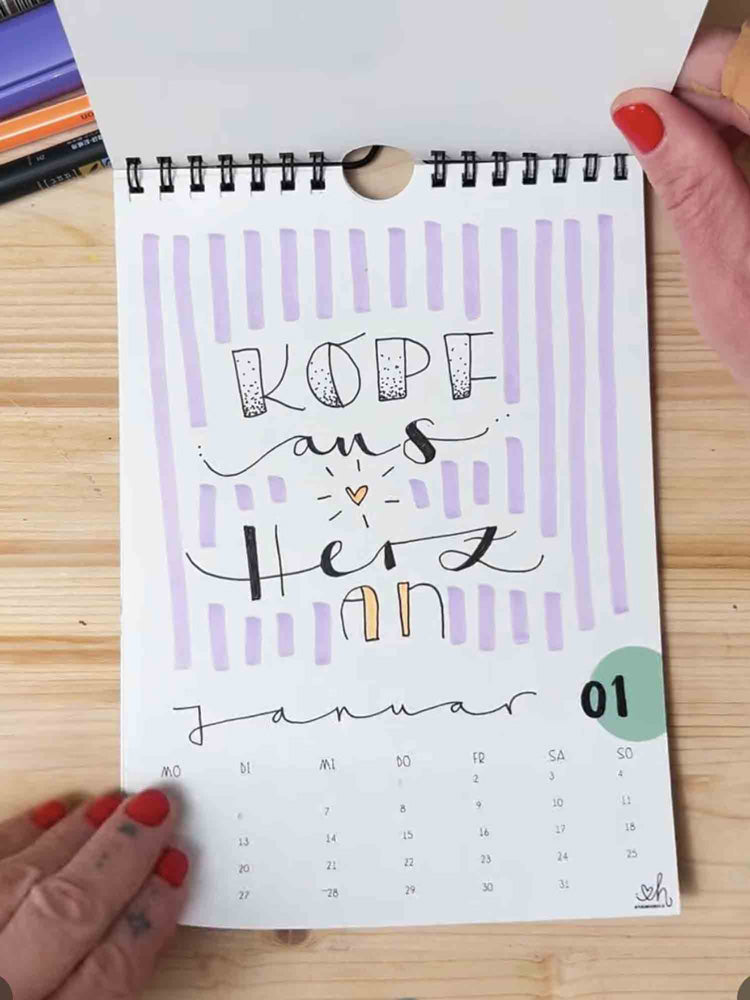 KOPF
aus
Herz
AN
Januar 01
MO DI MI DO FR SA SO
2 3 4
6 7 8 9 10 11
13 14 15 16 17 18
20 21 22 23 24 25
27 28 29 30 31